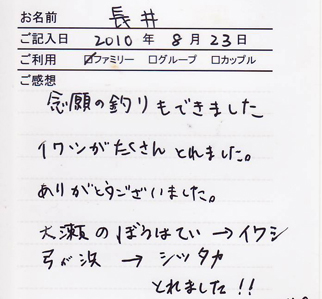 お名前 長井
ご記入日 2010 年 8 月 23 日
ご利用 ☑ファミリー □グループ □カップル
ご感想
念願の釣りもできました
イワシがたくさん とれました。
ありがとうございました。
大瀬のぼうはてい → イワシ
弓ヶ浜 → シッタカ
とれました!!